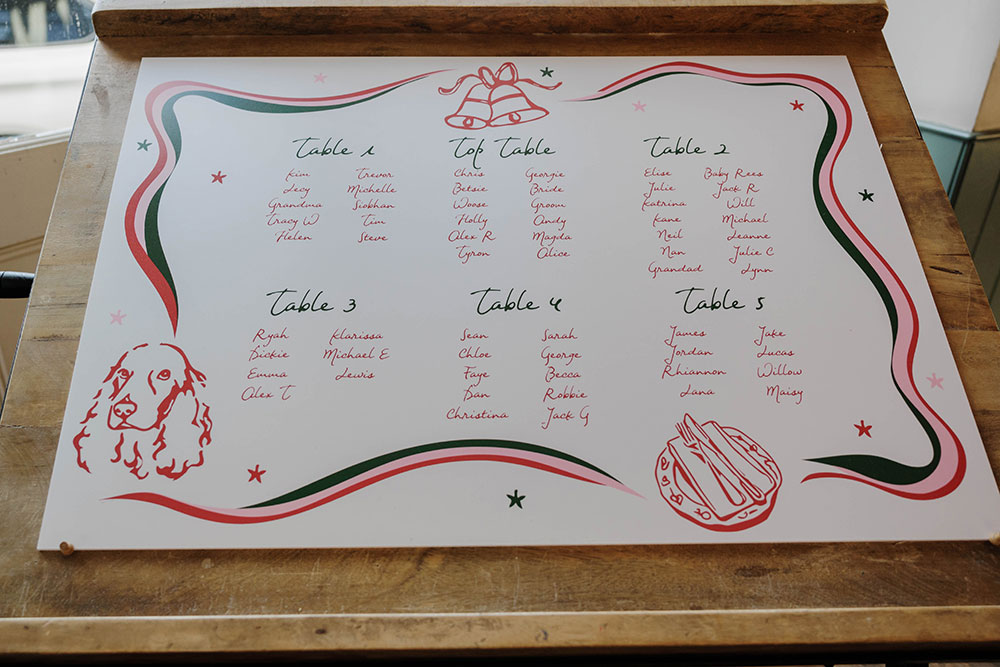 Table 1
Kim Trevor
Lecy Michelle
Grandma Siobhan
Tracy W Tim
Helen Steve
Top Table
Chris Georgie
Betsie Bride
Woose Groom
Holly Andy
Alex R Magda
Tyron Alice
Table 2
Elise Baby Rees
Julie Jack R
Katrina Will
Kane Michael
Neil Leanne
Nan Julie C
Grandad Lynn
Table 3
Ryah Klarissa
Dickie Michael E
Emma Lewis
Alex T
Table 4
Sean Sarah
Chloe George
Faye Becca
Dan Robbie
Christina Jack G
Table 5
James Jake
Jordan Lucas
Rhiannon Willow
Lana Maisy